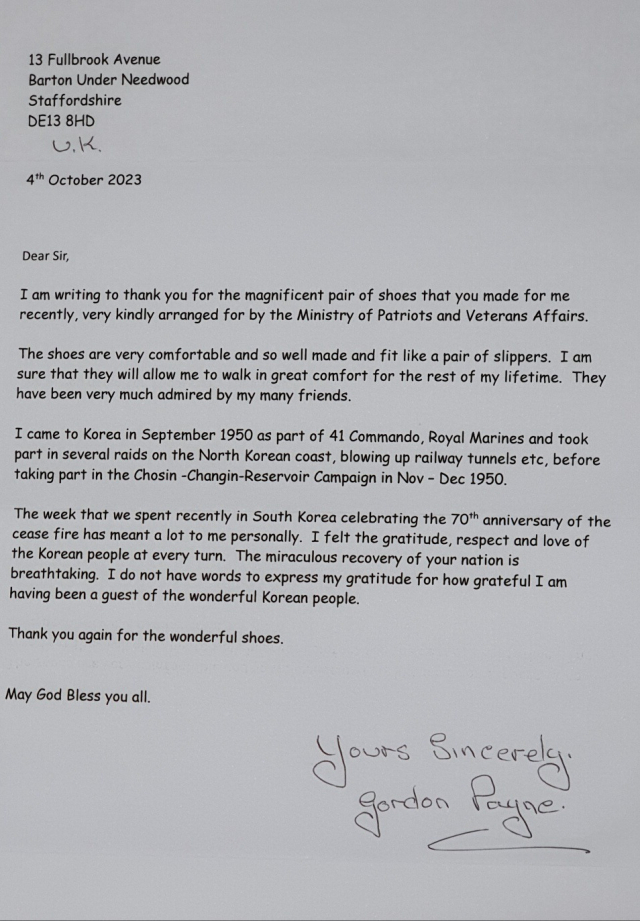 13 Fullbrook Avenue
Barton Under Needwood
Staffordshire
DE13 8HD
U.K.
4th October 2023
Dear Sir,
I am writing to thank you for the magnificent pair of shoes that you made for me
recently, very kindly arranged for by the Ministry of Patriots and Veterans Affairs.
The shoes are very comfortable and so well made and fit like a pair of slippers. I am
sure that they will allow me to walk in great comfort for the rest of my lifetime. They
have been very much admired by my many friends.
I came to Korea in September 1950 as part of 41 Commando, Royal Marines and took
part in several raids on the North Korean coast, blowing up railway tunnels etc, before
taking part in the Chosin -Changin-Reservoir Campaign in Nov – Dec 1950.
The week that we spent recently in South Korea celebrating the 70th anniversary of the
cease fire has meant a lot to me personally. I felt the gratitude, respect and love of
the Korean people at every turn. The miraculous recovery of your nation is
breathtaking. I do not have words to express my gratitude for how grateful I am
having been a guest of the wonderful Korean people.
Thank you again for the wonderful shoes.
May God Bless you all.
Yours Sincerely.
Gordon Payne.